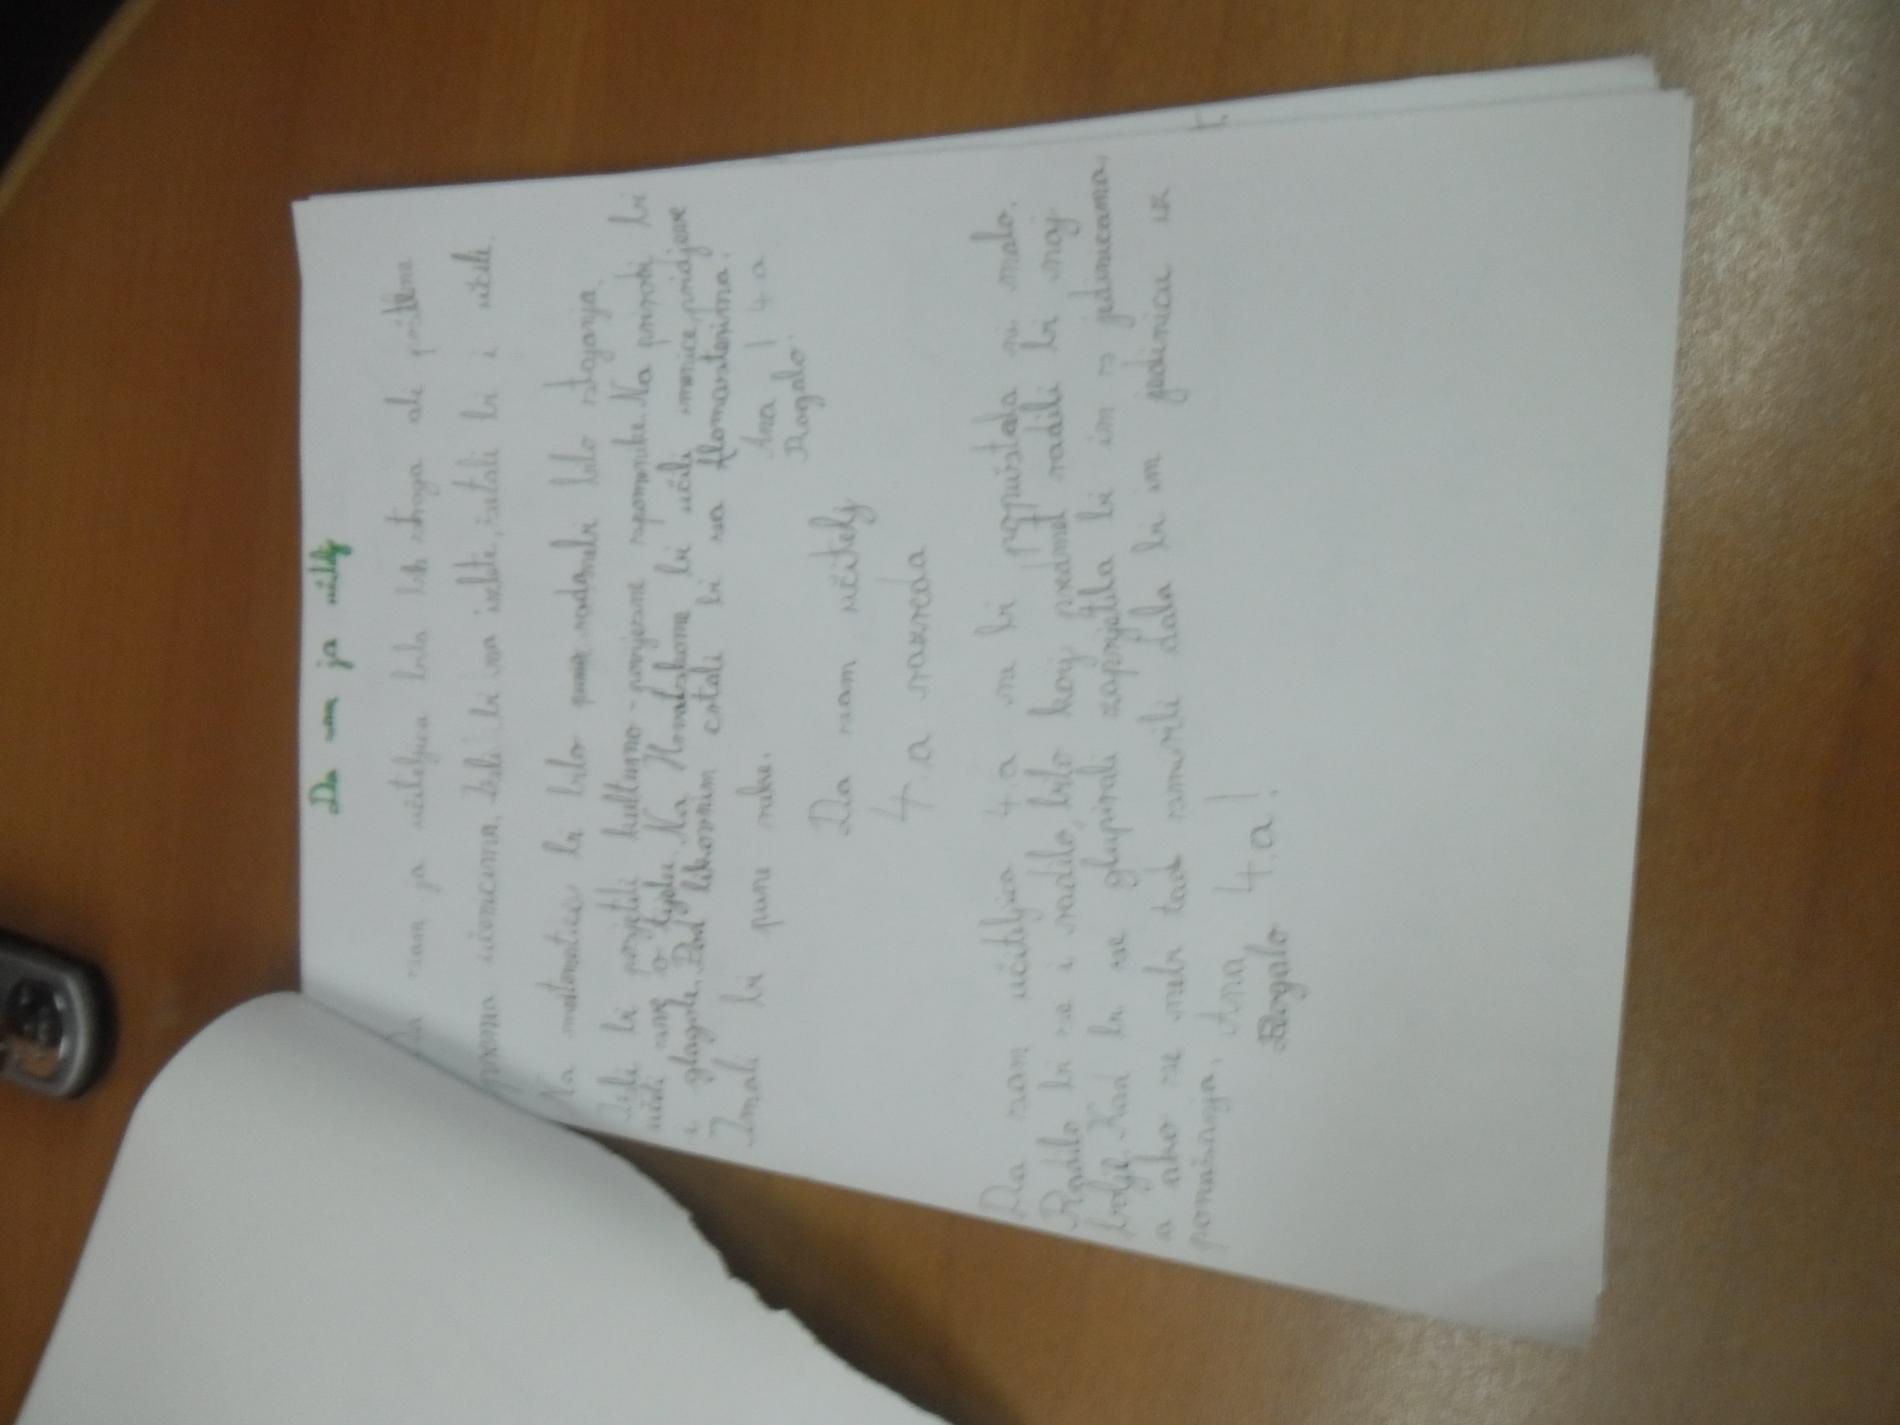 Da sam ja učitelj
Da sam ja učiteljica bila bih stroga ali poštena
prema učenicima. Išli bi na izlete, šutali bi i učili.
Na matematici bi bilo puno rada, nebi bilo stajanja.
Išli bi posjetiti kulturno-povijesne spomenike. Na prirodi bi
učili sve o tijelu. Na Hrvatskome bi učili imenice, pridjeve
i glagole. Pod likovnim crtali bi sa flomasterima.
Imali bi pune ruke.
Ana !
Rogalo 4.a
Da sam učitelj
4.a razreda
Da sam učiteljica 4.a ne bi popuštala ni malo.
Radilo bi se i radilo, bilo koji predmet radili bi moj
bolje. Kad bi se glupirali zaprijetila bi im s jedinicama,
a ako se nebi tad smirili dala bi im jedinicu iz
ponašanja. Ana
Rogalo 4.a!